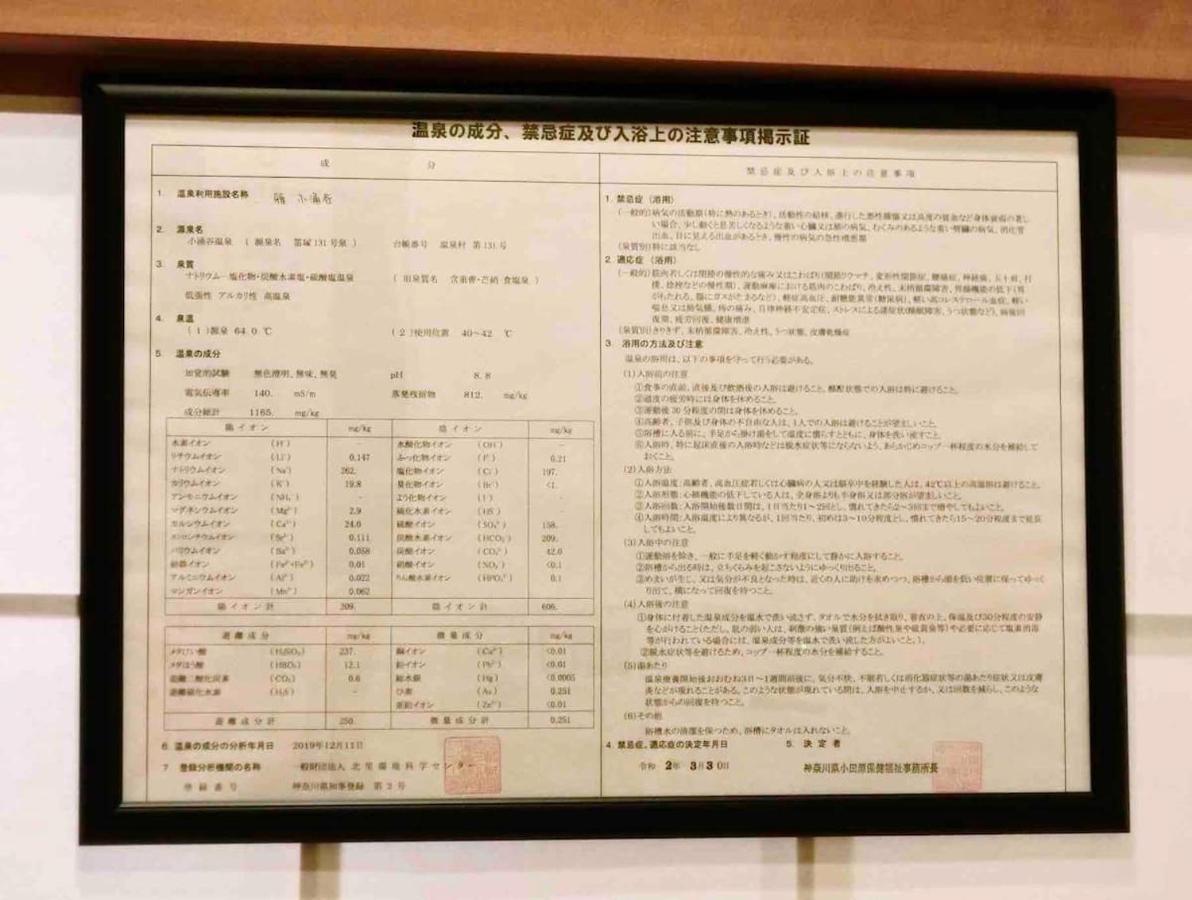 温泉の成分、禁忌症及び入浴上の注意事項掲示証
成 分
1. 温泉利用施設名称
2. 源泉名
小涌谷温泉 ( 源泉名 第131号泉 )
台帳番号 温泉村 第131号
3. 泉質
ナトリウム―塩化物・炭酸水素塩・硫酸塩温泉
( 旧泉質名 含重曹・芒硝 食塩泉 )
低張性 アルカリ性 高温泉
4. 泉温
(1)源泉 64.0 ℃
(2)使用位置 40~42 ℃
5. 温泉の成分
知覚的試験 無色澄明、無味、無臭
pH 8.8
電気伝導率 140. mS/m
蒸発残留物 812. mg/kg
成分総計 1165. mg/kg
陽イオン mg/kg 陰イオン mg/kg
水素イオン (H⁺) - 水酸化物イオン (OH⁻) -
リチウムイオン (Li⁺) 0.147 ふっ化物イオン (F⁻) 0.21
ナトリウムイオン (Na⁺) 262. 塩化物イオン (Cl⁻) 197.
カリウムイオン (K⁺) 19.8 臭化物イオン (Br⁻) <1.
アンモニウムイオン (NH₄⁺) - よう化物イオン (I⁻) -
マグネシウムイオン (Mg²⁺) 2.9 硫化水素イオン (HS⁻) -
カルシウムイオン (Ca²⁺) 24.0 硫酸イオン (SO₄²⁻) 158.
ストロンチウムイオン (Sr²⁺) 0.111 炭酸水素イオン (HCO₃⁻) 209.
バリウムイオン (Ba²⁺) 0.058 炭酸イオン (CO₃²⁻) 42.0
鉄イオン (Fe²⁺+Fe³⁺) 0.01 硝酸イオン (NO₃⁻) <0.1
アルミニウムイオン (Al³⁺) 0.022 りん酸水素イオン (HPO₄²⁻) 0.1
マンガンイオン (Mn²⁺) 0.062
陽イオン計 309. 陰イオン計 606.
遊離成分 mg/kg 微量成分 mg/kg
メタけい酸 (H₂SiO₃) 237. 銅イオン (Cu²⁺) <0.01
メタほう酸 (HBO₂) 12.1 鉛イオン (Pb²⁺) <0.01
遊離二酸化炭素 (CO₂) 0.6 総水銀 (Hg) <0.0005
遊離硫化水素 (H₂S) - ひ素 (As) 0.251
亜鉛イオン (Zn²⁺) <0.01
遊離成分計 250. 微量成分計 0.251
6. 温泉の成分の分析年月日 2019年12月11日
7 登録分析機関の名称 一般財団法人 北里環境科学センター
登録番号 神奈川県知事登録 第2号
禁忌症及び入浴上の注意事項
1. 禁忌症 (浴用)
(一般的)病気の活動期(特に熱のあるとき)、活動性の結核、進行した悪性腫瘍又は高度の貧血など身体衰弱の著し
い場合、少し動くと息苦しくなるような重い心臓又は肺の病気、むくみのあるような重い腎臓の病気、消化管
出血、目に見える出血があるとき、慢性の病気の急性増悪期
(泉質別)特に該当なし
2. 適応症 (浴用)
(一般的)筋肉若しくは関節の慢性的な痛み又はこわばり(関節リウマチ、変形性関節症、腰痛症、神経痛、五十肩、打
撲、捻挫などの慢性期)、運動麻痺における筋肉のこわばり、冷え性、末梢循環障害、胃腸機能の低下(胃
がもたれる、腸にガスがたまるなど)、軽症高血圧、耐糖能異常(糖尿病)、軽い高コレステロール血症、軽い
喘息又は肺気腫、痔の痛み、自律神経不安定症、ストレスによる諸症状(睡眠障害、うつ状態など)、病後回
復期、疲労回復、健康増進
(泉質別)きりきず、末梢循環障害、冷え性、うつ状態、皮膚乾燥症
3. 浴用の方法及び注意
温泉の浴用は、以下の事項を守って行う必要がある。
(1)入浴前の注意
①食事の直前、直後及び飲酒後の入浴は避けること。酩酊状態での入浴は特に避けること。
②過度の疲労時には身体を休めること。
③運動後30分程度の間は身体を休めること。
④高齢者、子供及び身体の不自由な人は、1人での入浴は避けることが望ましいこと。
⑤浴槽に入る前に、手足から掛け湯をして温度に慣らすとともに、身体を洗い流すこと。
⑥入浴時、特に起床直後の入浴時などは脱水症状等にならないよう、あらかじめコップ一杯程度の水分を補給して
おくこと。
(2)入浴方法
①入浴温度:高齢者、高血圧症若しくは心臓病の人又は脳卒中を経験した人は、42℃以上の高温浴は避けること。
②入浴形態:心肺機能の低下している人は、全身浴よりも半身浴又は部分浴が望ましいこと。
③入浴回数:入浴開始後数日間は、1日当たり1~2回とし、慣れてきたら2~3回まで増やしてもよいこと。
④入浴時間:入浴温度により異なるが、1回当たり、初めは3~10分程度とし、慣れてきたら15~20分程度まで延長
してもよいこと。
(3)入浴中の注意
①運動浴を除き、一般に手足を軽く動かす程度にして静かに入浴すること。
②浴槽から出る時は、立ちくらみを起こさないようにゆっくり出ること。
③めまいが生じ、又は気分が不良となった時は、近くの人に助けを求めつつ、浴槽から頭を低い位置に保ってゆっく
り出て、横になって回復を待つこと。
(4)入浴後の注意
①身体に付着した温泉成分を温水で洗い流さず、タオルで水分を拭き取り、着衣の上、保温及び30分程度の安静
を心がけること(ただし、肌の弱い人は、刺激の強い泉質(例えば酸性泉や硫黄泉等)や必要に応じて塩素消毒
等が行われている場合には、温泉成分等を温水で洗い流した方がよいこと。)。
②脱水症状等を避けるため、コップ一杯程度の水分を補給すること。
(5)湯あたり
温泉療養開始後おおむね3日~1週間前後に、気分不快、不眠若しくは消化器症状等の湯あたり症状又は皮膚
炎などが現れることがある。このような状態が現れている間は、入浴を中止するか、又は回数を減らし、このような
状態からの回復を待つこと。
(6)その他
浴槽水の清潔を保つため、浴槽にタオルは入れないこと。
4. 禁忌症、適応症の決定年月日 5. 決定者
令和 2年 3月30日 神奈川県小田原保健福祉事務所長